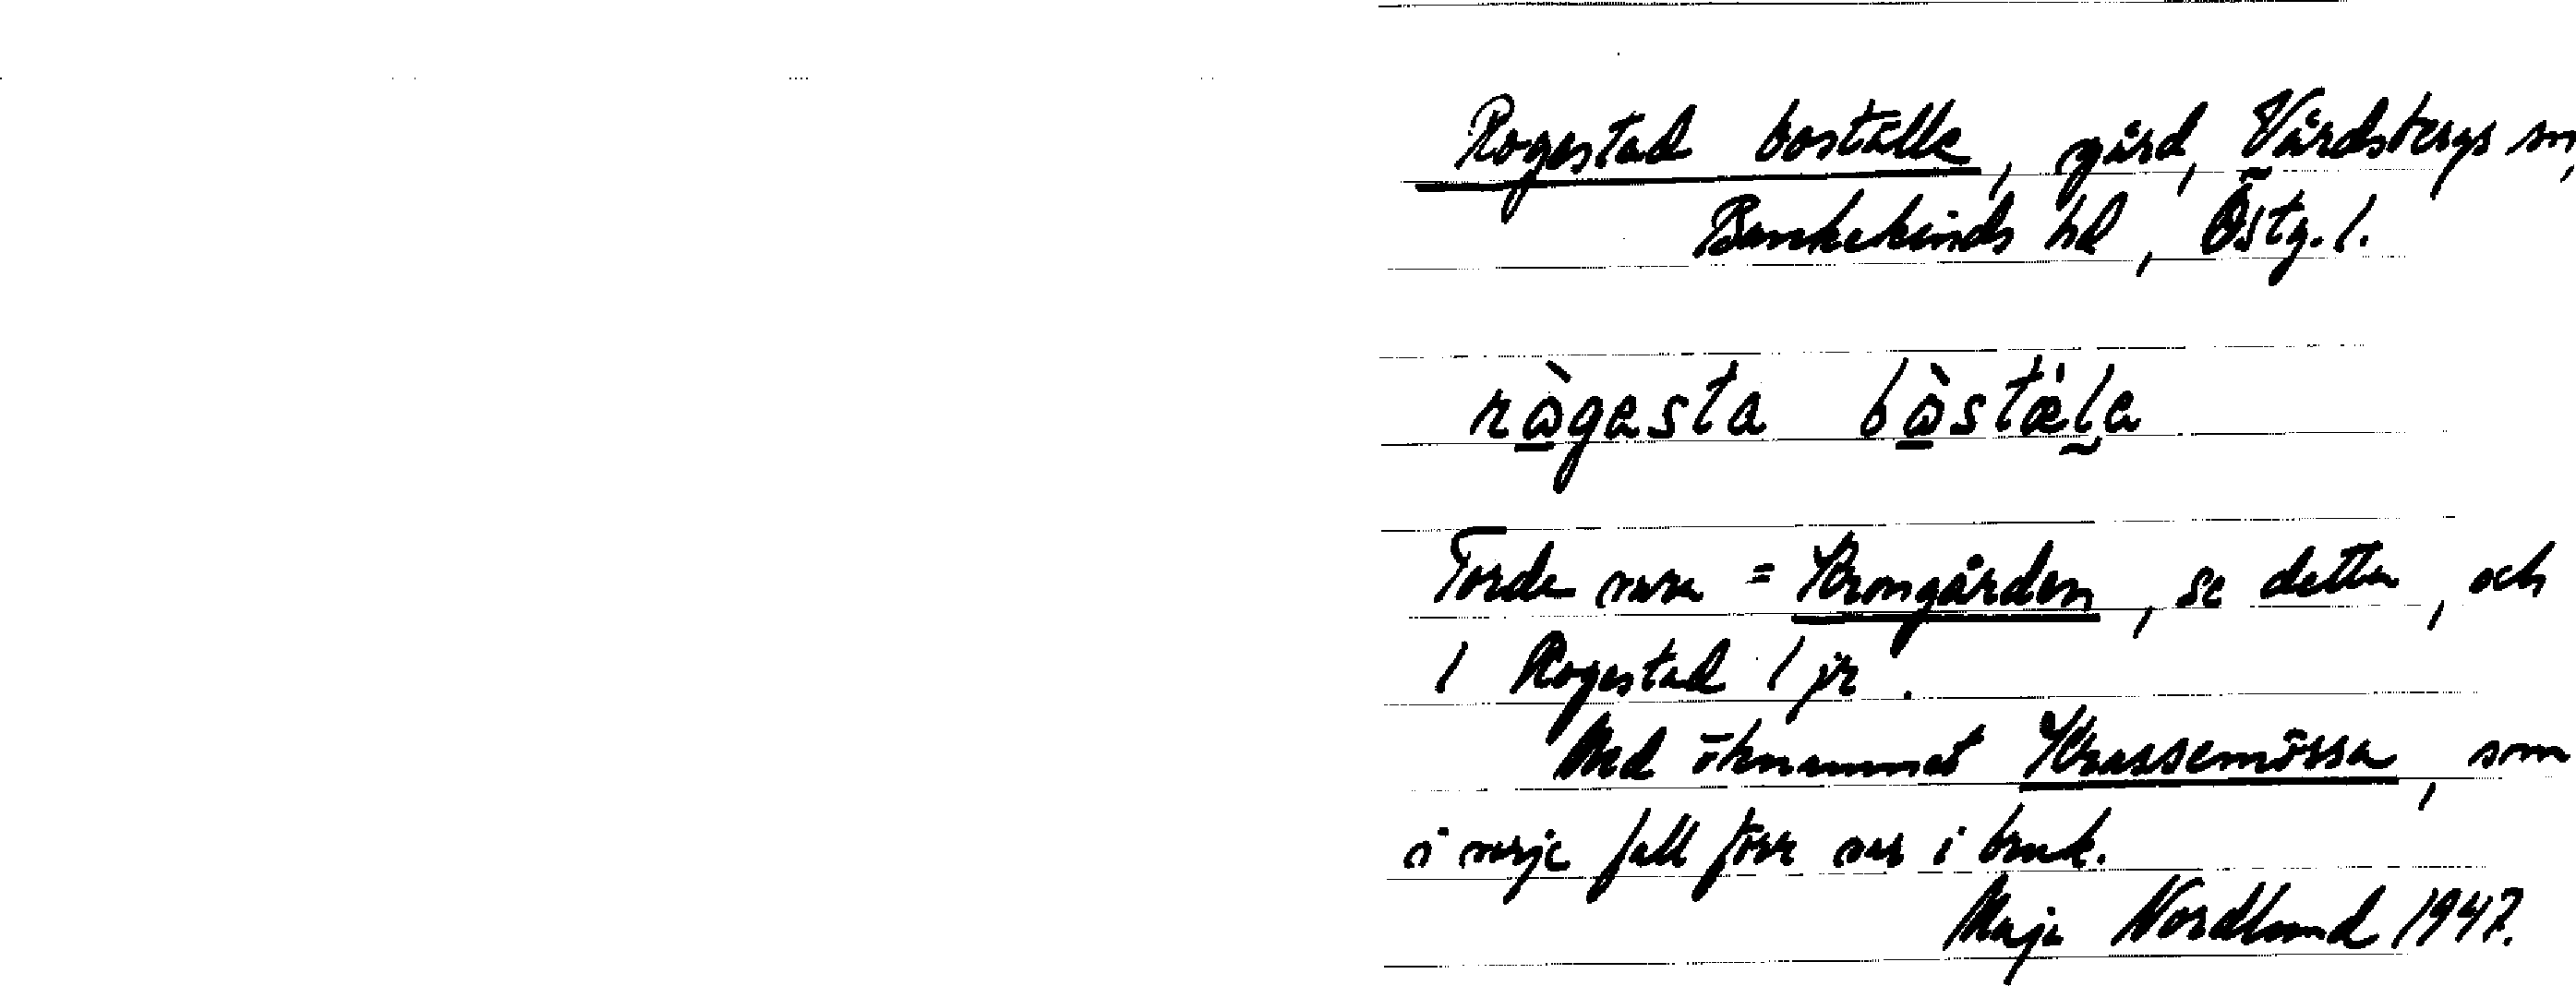 Rogestad boställe, gård, Vårdsbergs sn,
Bankekinds hd, Östg. l.
rò̲gesta bò̲stǽla
Torde vara = Krongården, se detta, och
1 Rogestad 1 jr.
Med öknamnet Krassemössa, som
i varje fall förr var i bruk.
Maja Nordlund 1947.